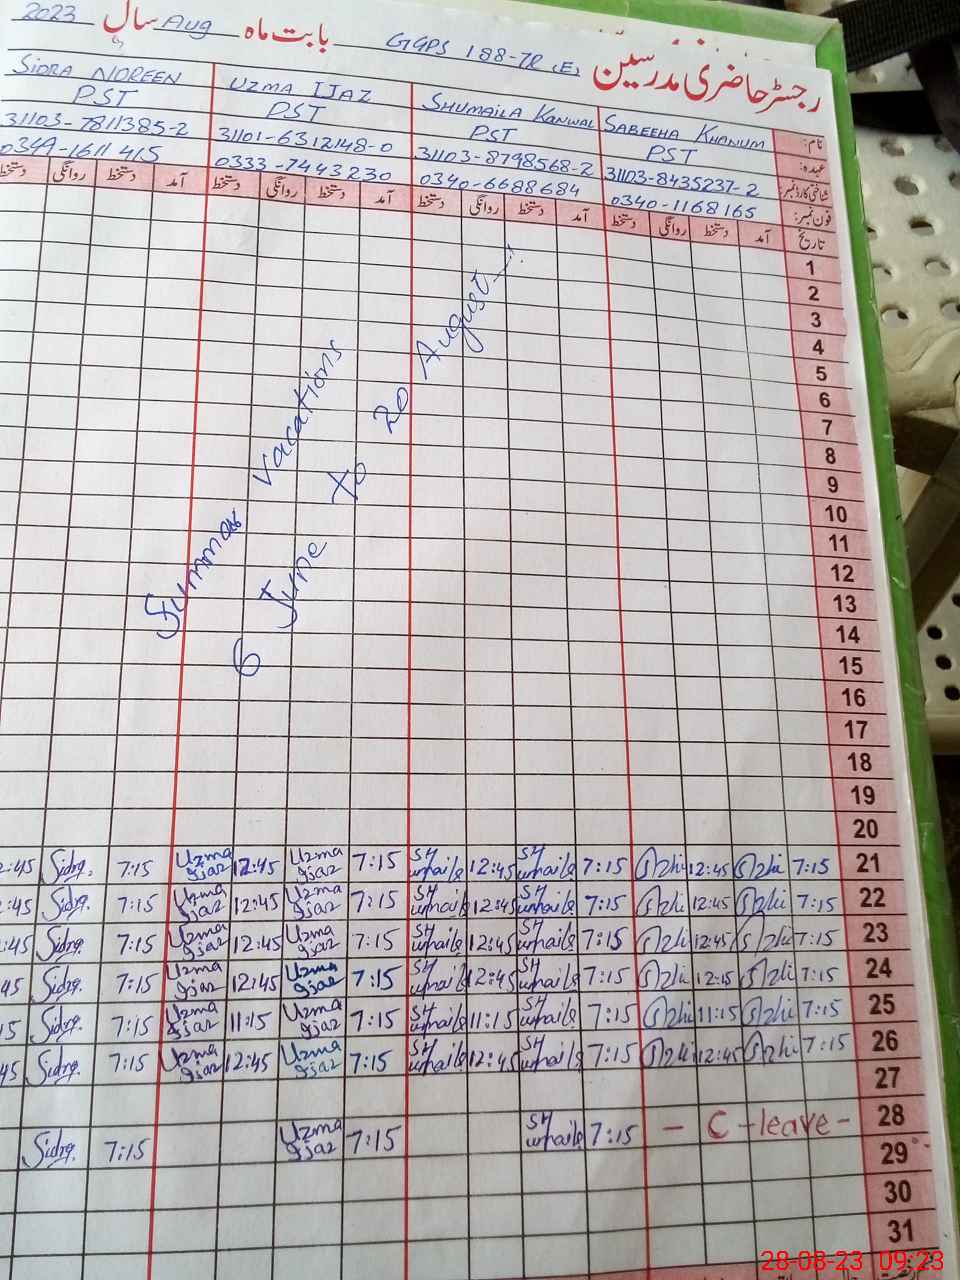 رجسٹر حاضری مدرسین GGPS 188-7R (E) بابت ماہ Aug سال 2023
نام: SABEEHA KHANUM SHUMAILA KANWAL UZMA IJAZ SIDRA NOREEN
عہدہ: PST PST PST PST
شناختی کارڈ نمبر: 31103-8435237-2 31103-8798568-2 31101-6312148-0 31103-7811385-2
فون نمبر: 0340-1168165 0340-6688684 0333-7443230 0344-1611415
تاریخ آمد دستخط روانگی دستخط آمد دستخط روانگی دستخط آمد دستخط روانگی دستخط آمد دستخط روانگی دستخط
1
2
3
4
5
6
7
8
9
10
11
12
13
14
15
16
17
18
19
20
Summer vacations
6 June to 20 August
21 7:15 12:45 7:15 Shumaila 12:45 Shumaila 7:15 Uzma Ijaz 12:45 Uzma Ijaz 7:15 Sidra 12:45
22 7:15 12:45 7:15 Shumaila 12:45 Shumaila 7:15 Uzma Ijaz 12:45 Uzma Ijaz 7:15 Sidra :45
23 7:15 12:45 7:15 Shumaila 12:45 Shumaila 7:15 Uzma Ijaz 12:45 Uzma Ijaz 7:15 Sidra :45
24 7:15 12:15 7:15 Shumaila 12:45 Shumaila 7:15 Uzma Ijaz 12:45 Uzma Ijaz 7:15 Sidra 45
25 7:15 11:15 7:15 Shumaila 11:15 Shumaila 7:15 Uzma Ijaz 11:15 Uzma Ijaz 7:15 Sidra 15
26 7:15 12:45 7:15 Shumaila 12:45 Shumaila 7:15 Uzma Ijaz 12:45 Uzma Ijaz 7:15 Sidra 45
27
28 - C-leave - 7:15 Shumaila 7:15 Uzma Ijaz 7:15 Sidra
29
30
31
28-08-23 09:23